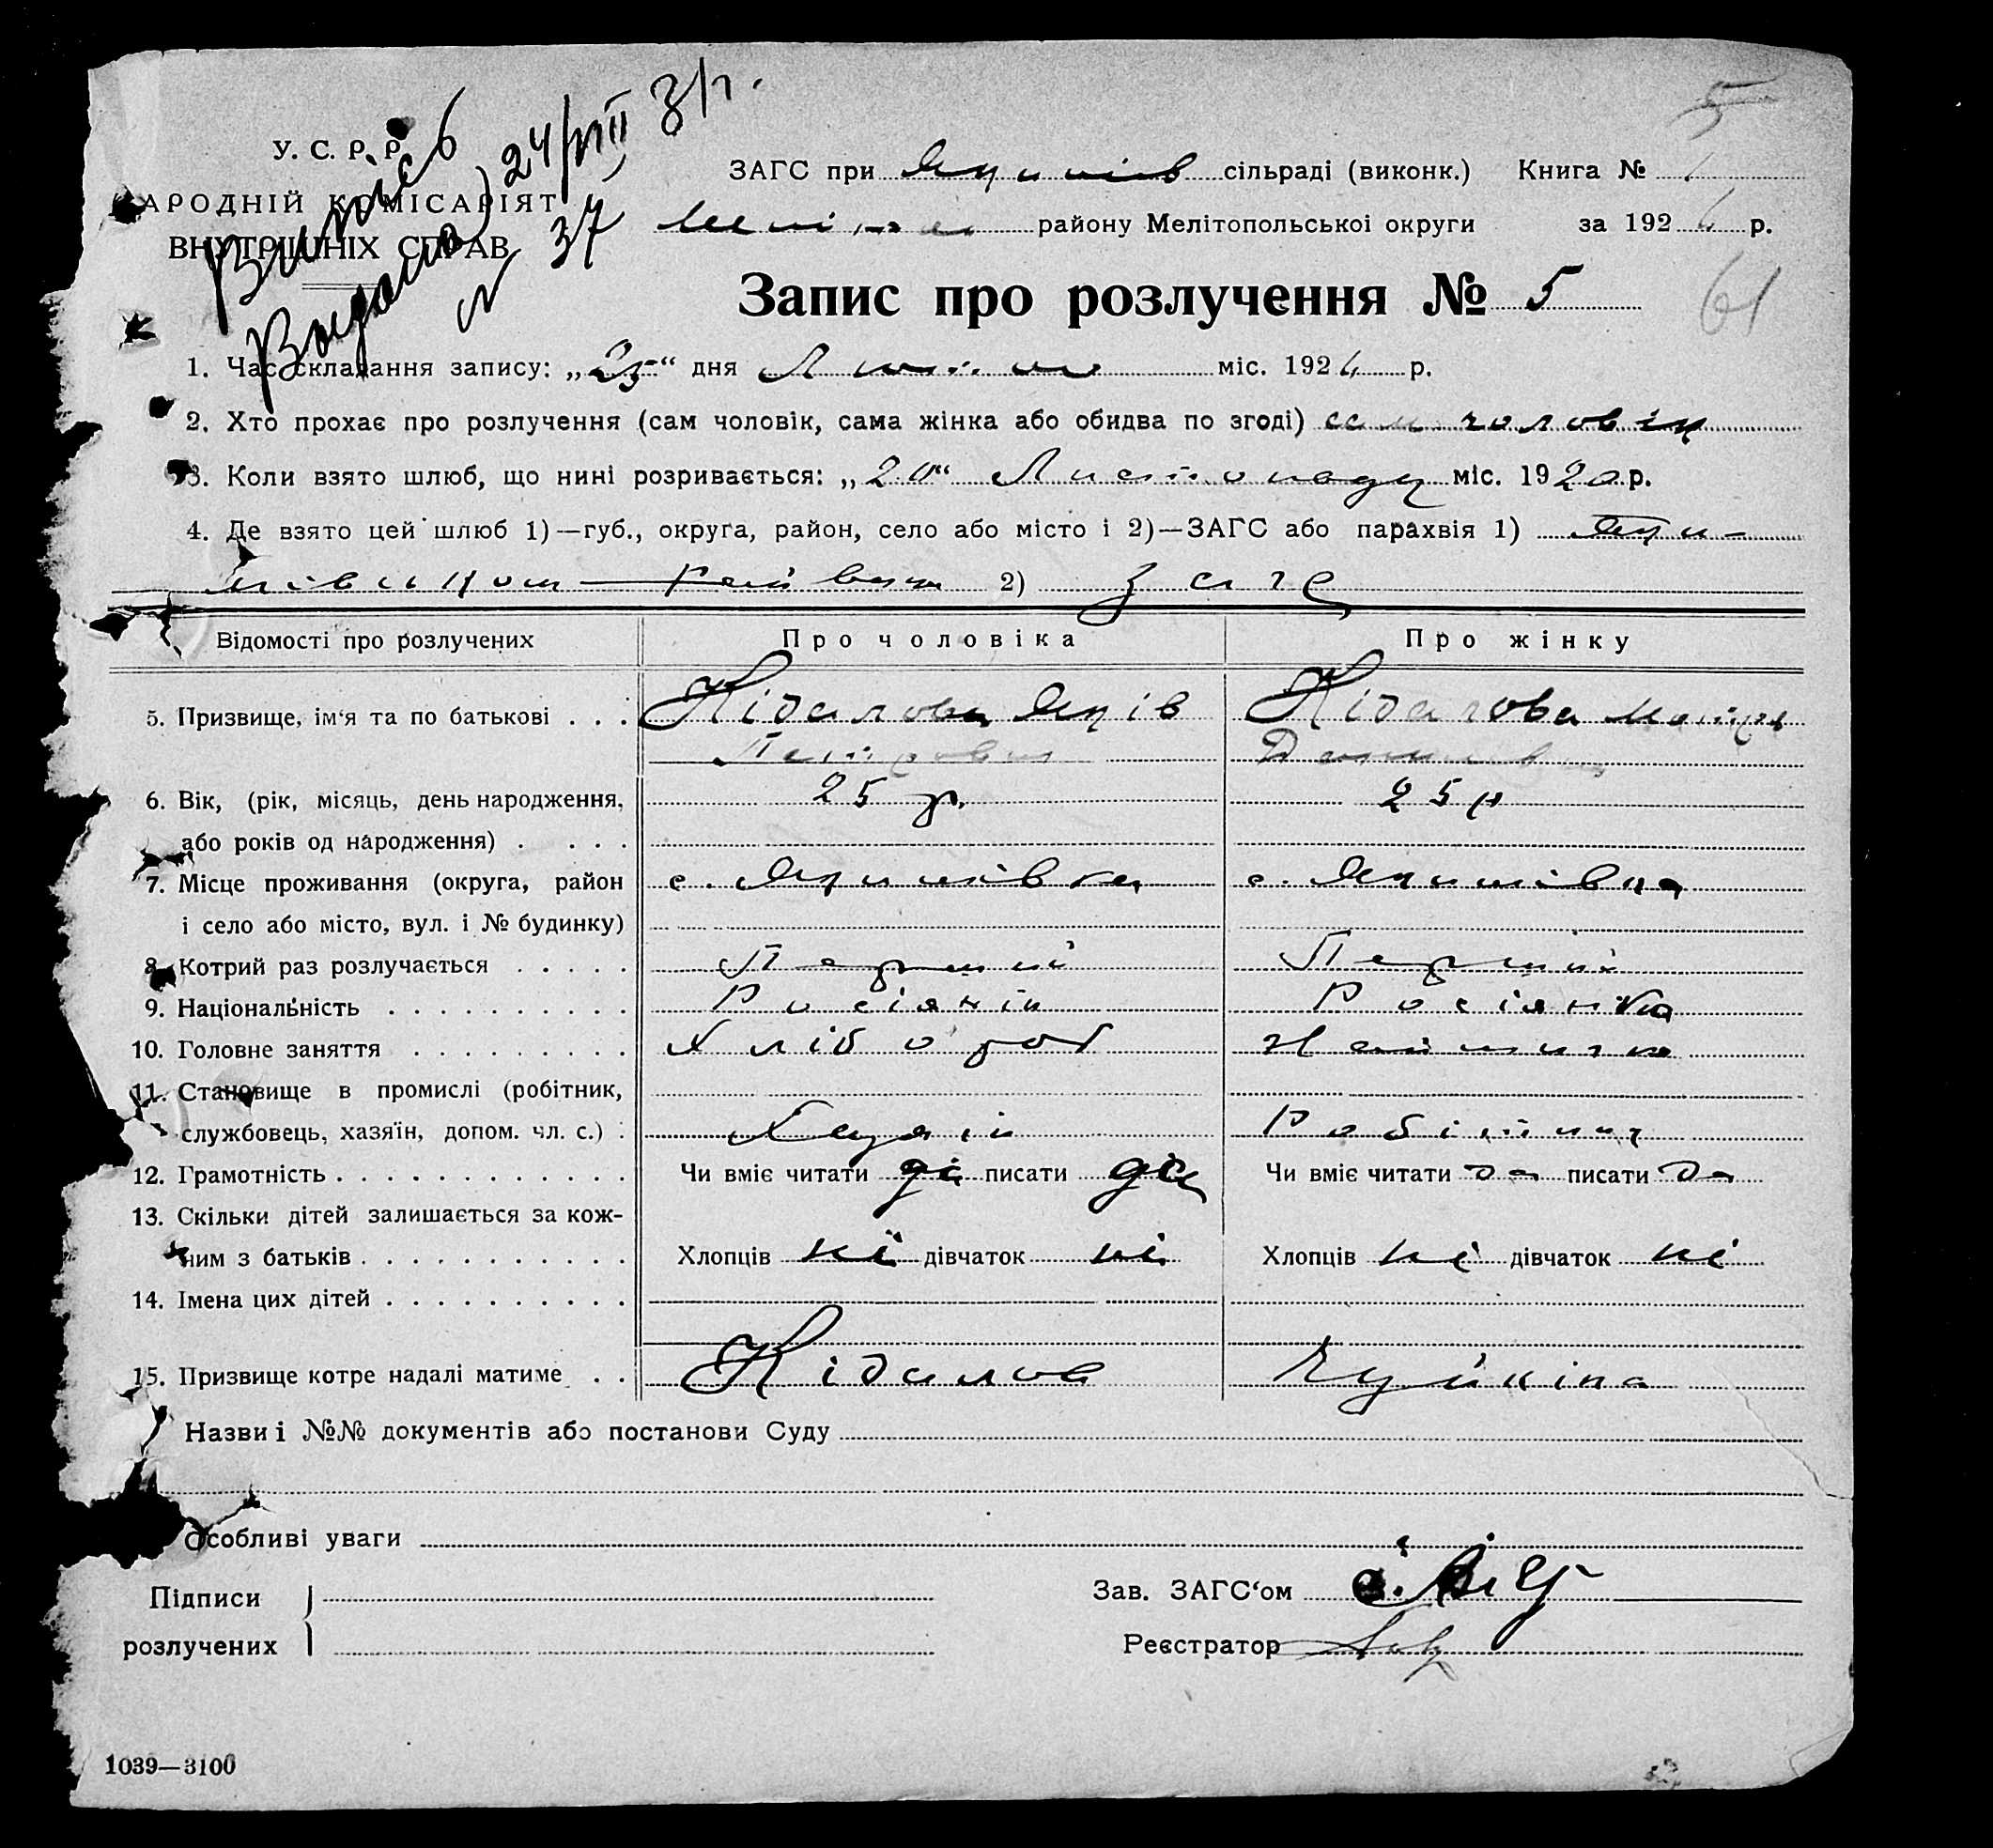 5
Випись
Видана 24/VIII 31г.
N 37
У. С. Р. Р.
НАРОДНІЙ КОМІСАРІЯТ
ВНУТРІШНІХ СПРАВ
ЗАГС при Якимів сільраді (виконк.) Книга № 1
району Мелітопольської округи за 1926 р.
Запис про розлучення № 5
61
1. Час складання запису: „25“ дня міс. 1926 р.
2. Хто прохає про розлучення (сам чоловік, сама жінка або обидва по згоді) сам чоловік
3. Коли взято шлюб, що нині розривається: „20“ Листопаду міс. 1920 р.
4. Де взято цей шлюб 1)—губ., округа, район, село або місто і 2)—ЗАГС або парахвія 1) Яки-
мівськом 2) загс
Відомості про розлучених Про чоловіка Про жінку
5. Призвище, ім‘я та по батькові . . . Кідалова Яків Кідалова
Петрович
6. Вік, (рік, місяць, день народження, 25 р. 25 р
або років од народження) . . . .
7. Місце проживання (округа, район с. Якимівка с. Якимівка
і село або місто, вул. і № будинку)
8. Котрий раз розлучається . . . . . Перший Перший
9. Національність . . . . . . . . . . Росіянін Росіянка
10. Головне заняття . . . . . . . . . Хлібороб Наймичка
11. Становище в промислі (робітник,
службовець, хазяїн, допом. чл. с.) . Хазяїн Робітниця
12. Грамотність . . . . . . . . . . . . Чи вміє читати да писати да Чи вміє читати да писати да
13. Скільки дітей залишається за кож-
ним з батьків . . . . . . . . . . . Хлопців ні дівчаток ні Хлопців ні дівчаток ні
14. Імена цих дітей . . . . . . . . . .
15. Призвище котре надалі матиме . . Кідалов Чуйкіна
Назви і №№ документів або постанови Суду
Особливі уваги
Підписи
розлучених
Зав. ЗАГС‘ом
Реєстратор
1039—3100